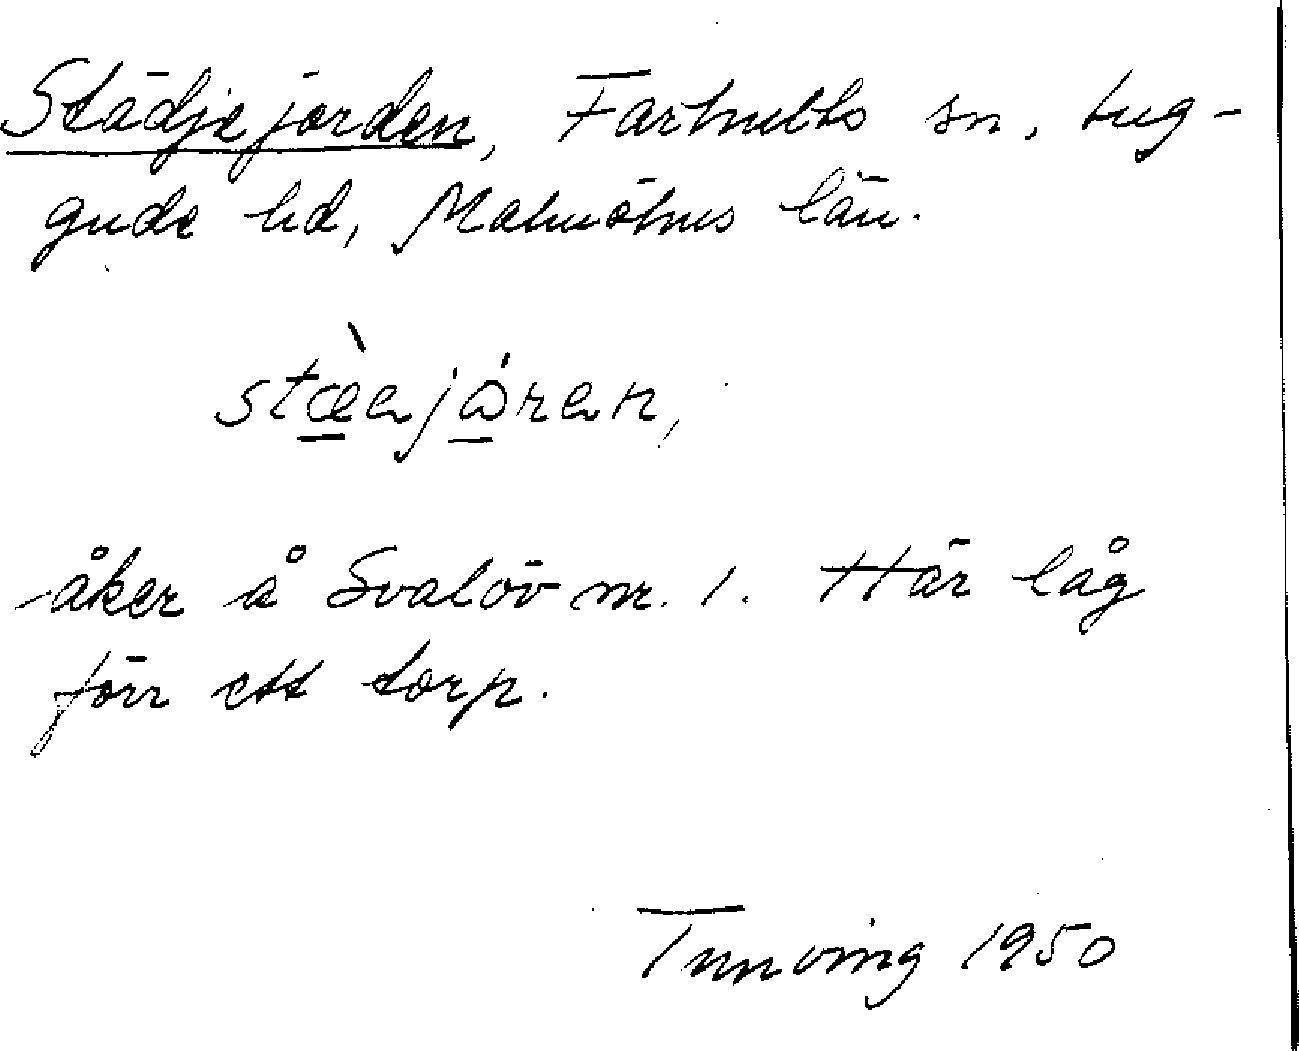 Städjejorden, Farhults sn, Lug-
gude hd, Malmöhus län.
stæ̀ajåran,
åker å Svalöv nr. 1. Här låg
förr ett torp.
Tunving 1950